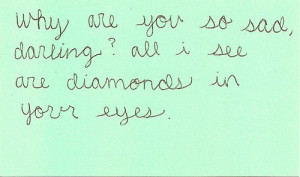 why are you so sad,
darling? all i see
are diamonds in
your eyes.